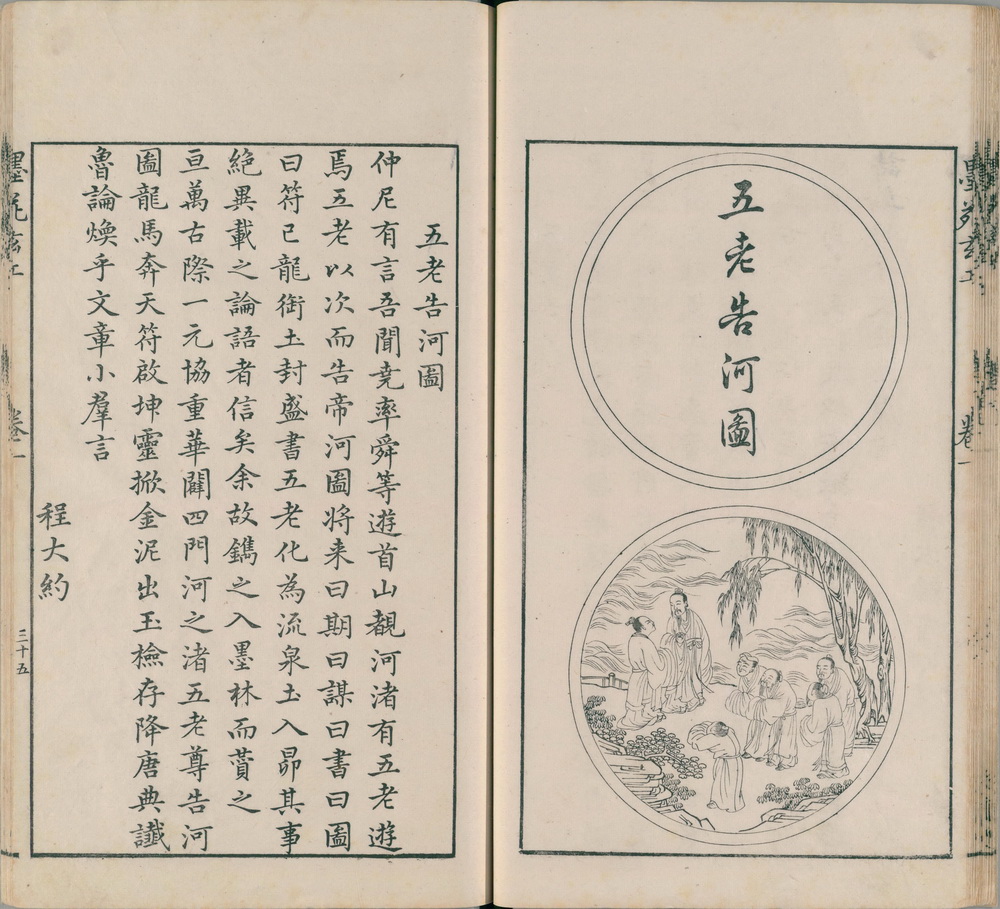 五老告河圖
五老告河圖
仲尼有言吾聞堯率舜等遊首山觀河渚有五老遊
焉五老以次而告帝河圖將来曰期曰謀曰書曰圖
曰符已龍銜土封盛書五老化為流泉土入昴其事
絶異載之論語者信矣余故鐫之入墨林而薋之
亘萬古際一元協重華闢四門河之渚五老尊告河
圖龍馬奔天符啟坤靈掀金泥出玉檢存降唐典讖
魯論煥乎文章小羣言
程大約
卷一
三十五